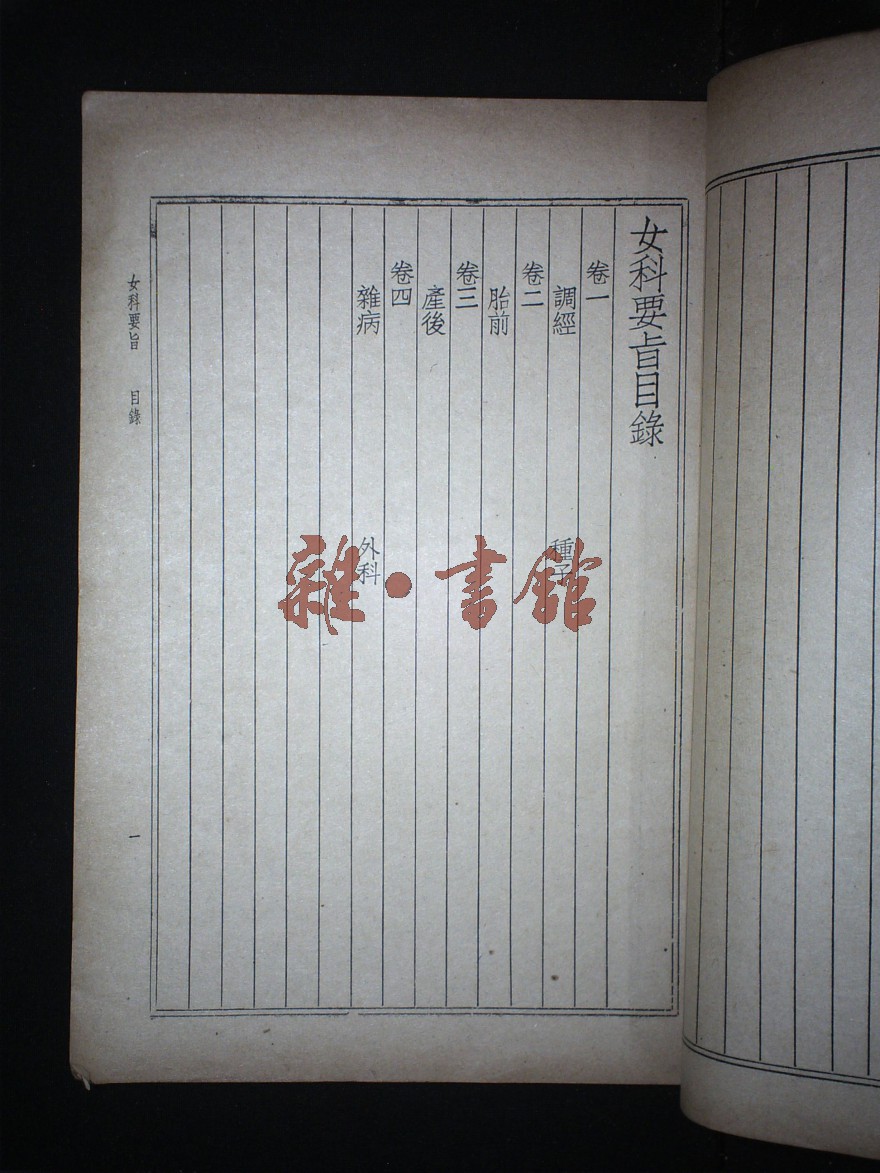 女科要旨目錄
卷一
調經 種子
卷二
胎前
卷三
產後
卷四
雜病 外科
女科要旨 目錄 一
雜·書館